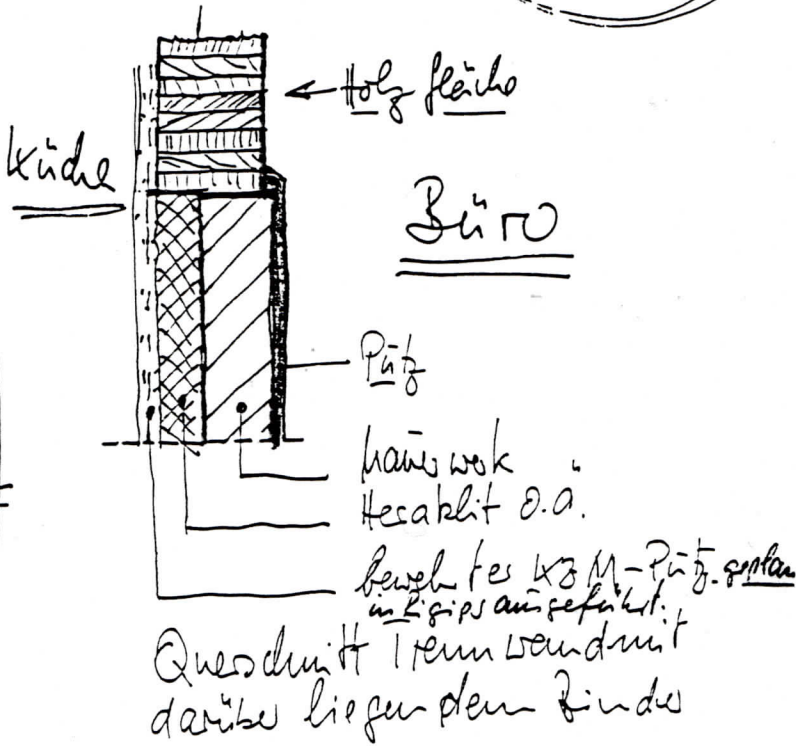 Holzfläche
Küche
Büro
Putz
Mauerwerk
Heraklit o.ä.
bewehrter KZM-Putz geplan
in Rigips ausgeführt.
Querschnitt Trennwand mit
darüber liegendem Binder